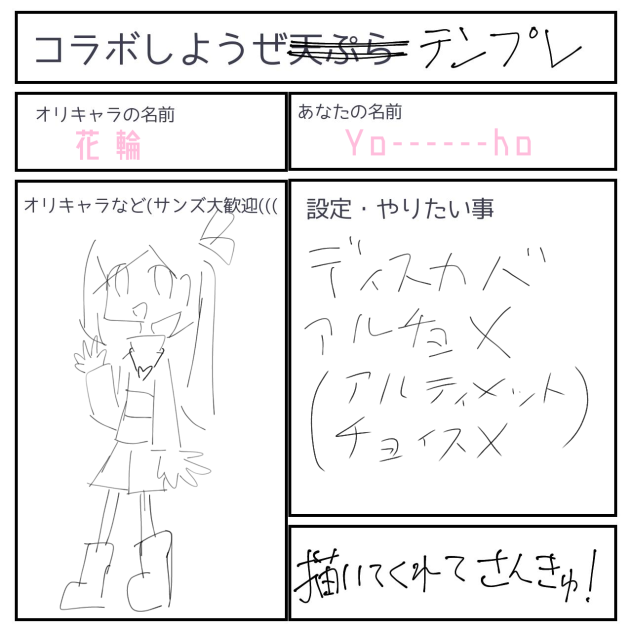 コラボしようぜ天ぷらテンプレ
オリキャラの名前
花輪
あなたの名前
Yo------ho
オリキャラなど(サンズ大歓迎(((
設定・やりたい事
ディスカバ
アルチョメ
(アルティメット
チョイスメ)
描いてくれてさんきゅ!